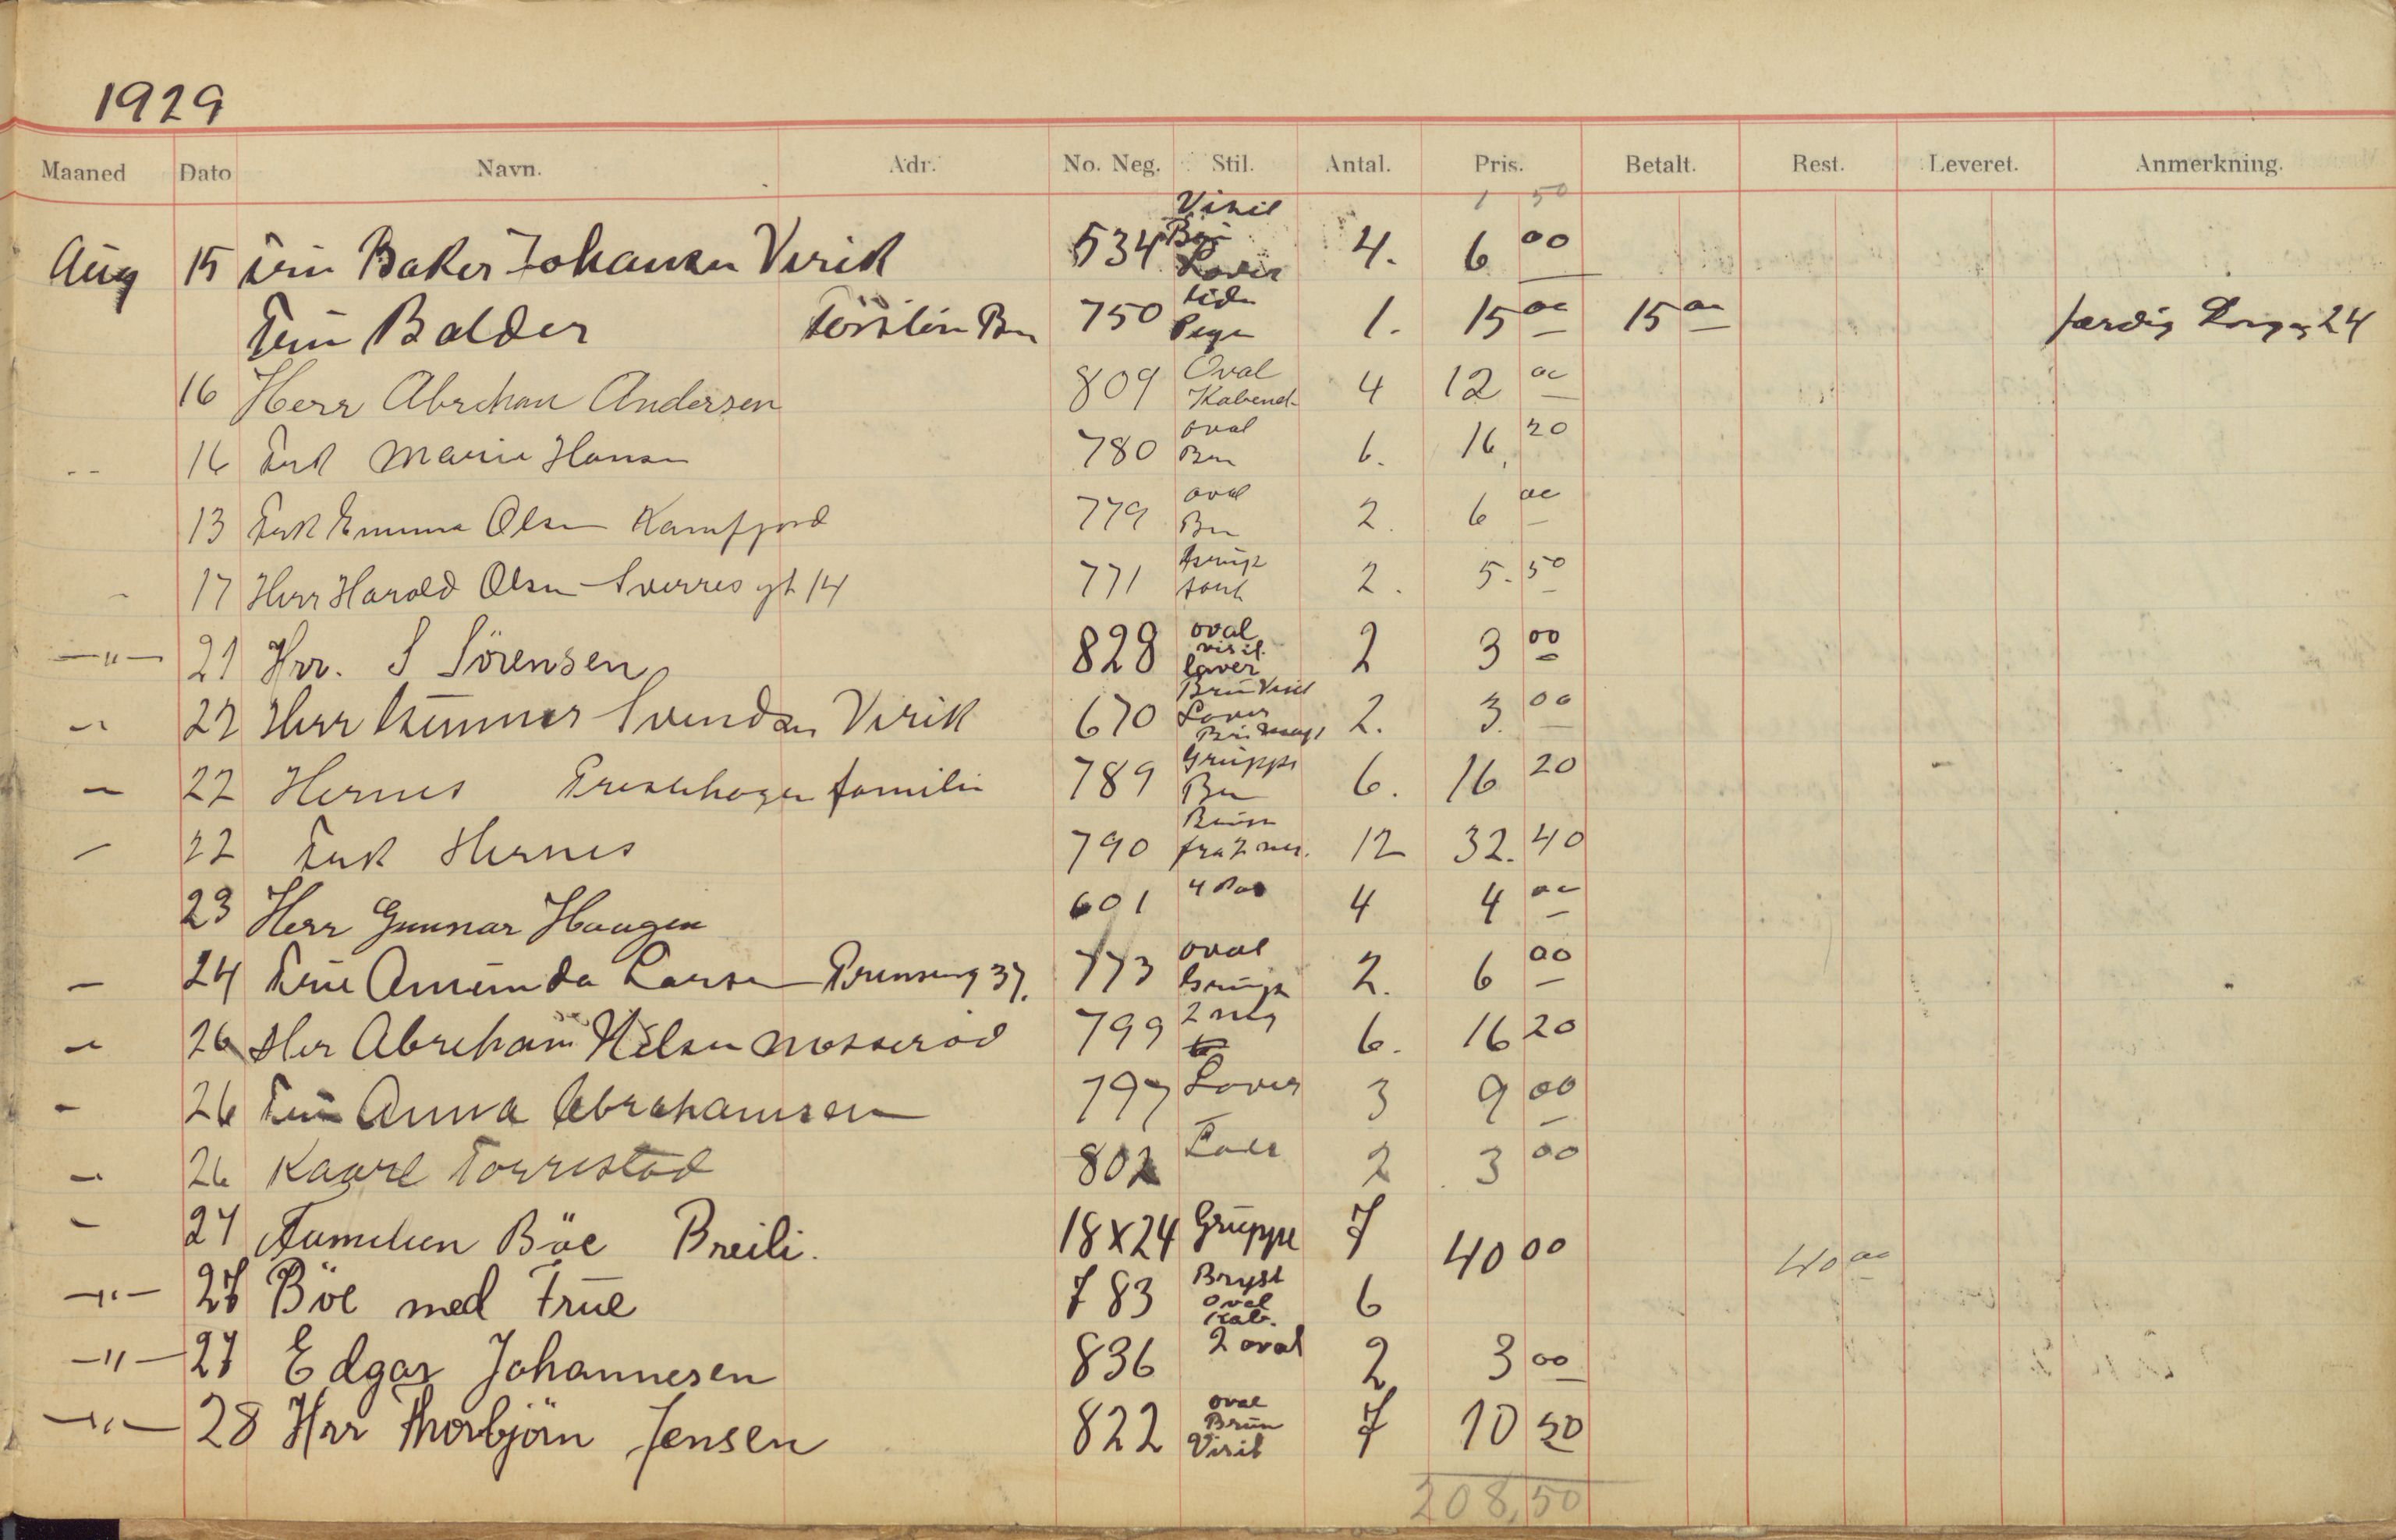 1929
Maaned Dato Navn. Adr. No. Neg. Stil. Antal. Pris. Betalt. Rest. Leveret. Anmerkning.
1 50
Aug 15 Baker Johansen Virik 534 Visit 4. 6 00
Balder 750 1. 15 00 15 00 færdig 24
16 Herr Abreham Andersen 809 Oval 4 12 00
16 Frk Marie Hansen 780 oval Brun 6. 16. 20
13 Frk Emma Olsen Kamfjord 779 oval Brun 2. 6 00
17 Herr Harald Olsen Sverres gt 14 771 2. 5.50
—"— 21 Hrr. S Sörensen 828 oval visit. laver 2 3 00
22 Herr Gunnar Svendsen Virik 670 Brun Visit 2. 3. 00
22 Hernes familie 789 Gruppe Brun 6. 16 20
22 Frk Hernes 790 12 32.40
23 Herr Gunnar Haugen 601 4 4 4 00
24 Frue Amunda Larsen 37. 773 oval Gruppe 2. 6 00
26 Her Abreham Nilsen Mosserød 799 2 neg 6. 16 20
26 Anna Abrahamsen 797 3 9 00
26 Kaare Torrestad 802 2 3 00
27 Familien Böe Breili. 18x24 Gruppe 7 40 00 40 00
—"— 27 Böe med Frue 783 Bryst oval Kab. 6
—"— 27 Edgar Johannesen 836 2 oval 2 3 00
—"— 28 Hrr Thorbjörn Jensen 822 oval Brun Visit 7 10 50
208,50